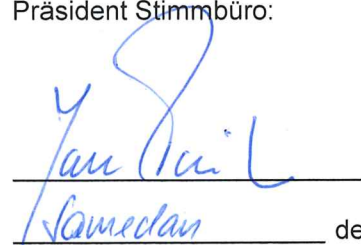 Präsident Stimmbüro:
Samedan de